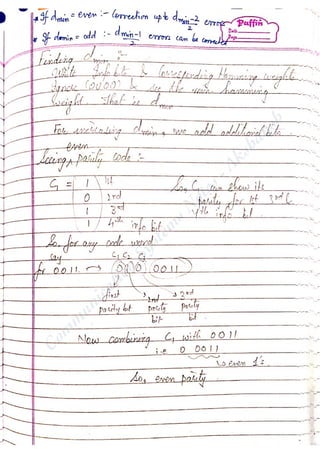 * If dmin = even :- Correction upto dmin-2/2 errors
* If dmin = odd :- dmin-1/2 errors can be corrected
Puffin
Date
Page
Finding dmin :-
Write Info bits & Corresponding Hamming weights
Ignore (0000) & see the min hamming
weight. That is dmin
For increasing dmin, we add additional bits
even
Seeing parity code :-
C1 = 1 1st
0 2nd
1 3rd
1 4th info bit
So, C1 can show its
parity for 1st 3rd &
4th info bit
So, for any code word
say C1 C2 C3
for 0011 → 0 1 0 0011
first parity bit
2nd parity bit
3rd parity bit
Now combining C1 with 0011
i.e 0 0011
→ even 1's
So, even parity